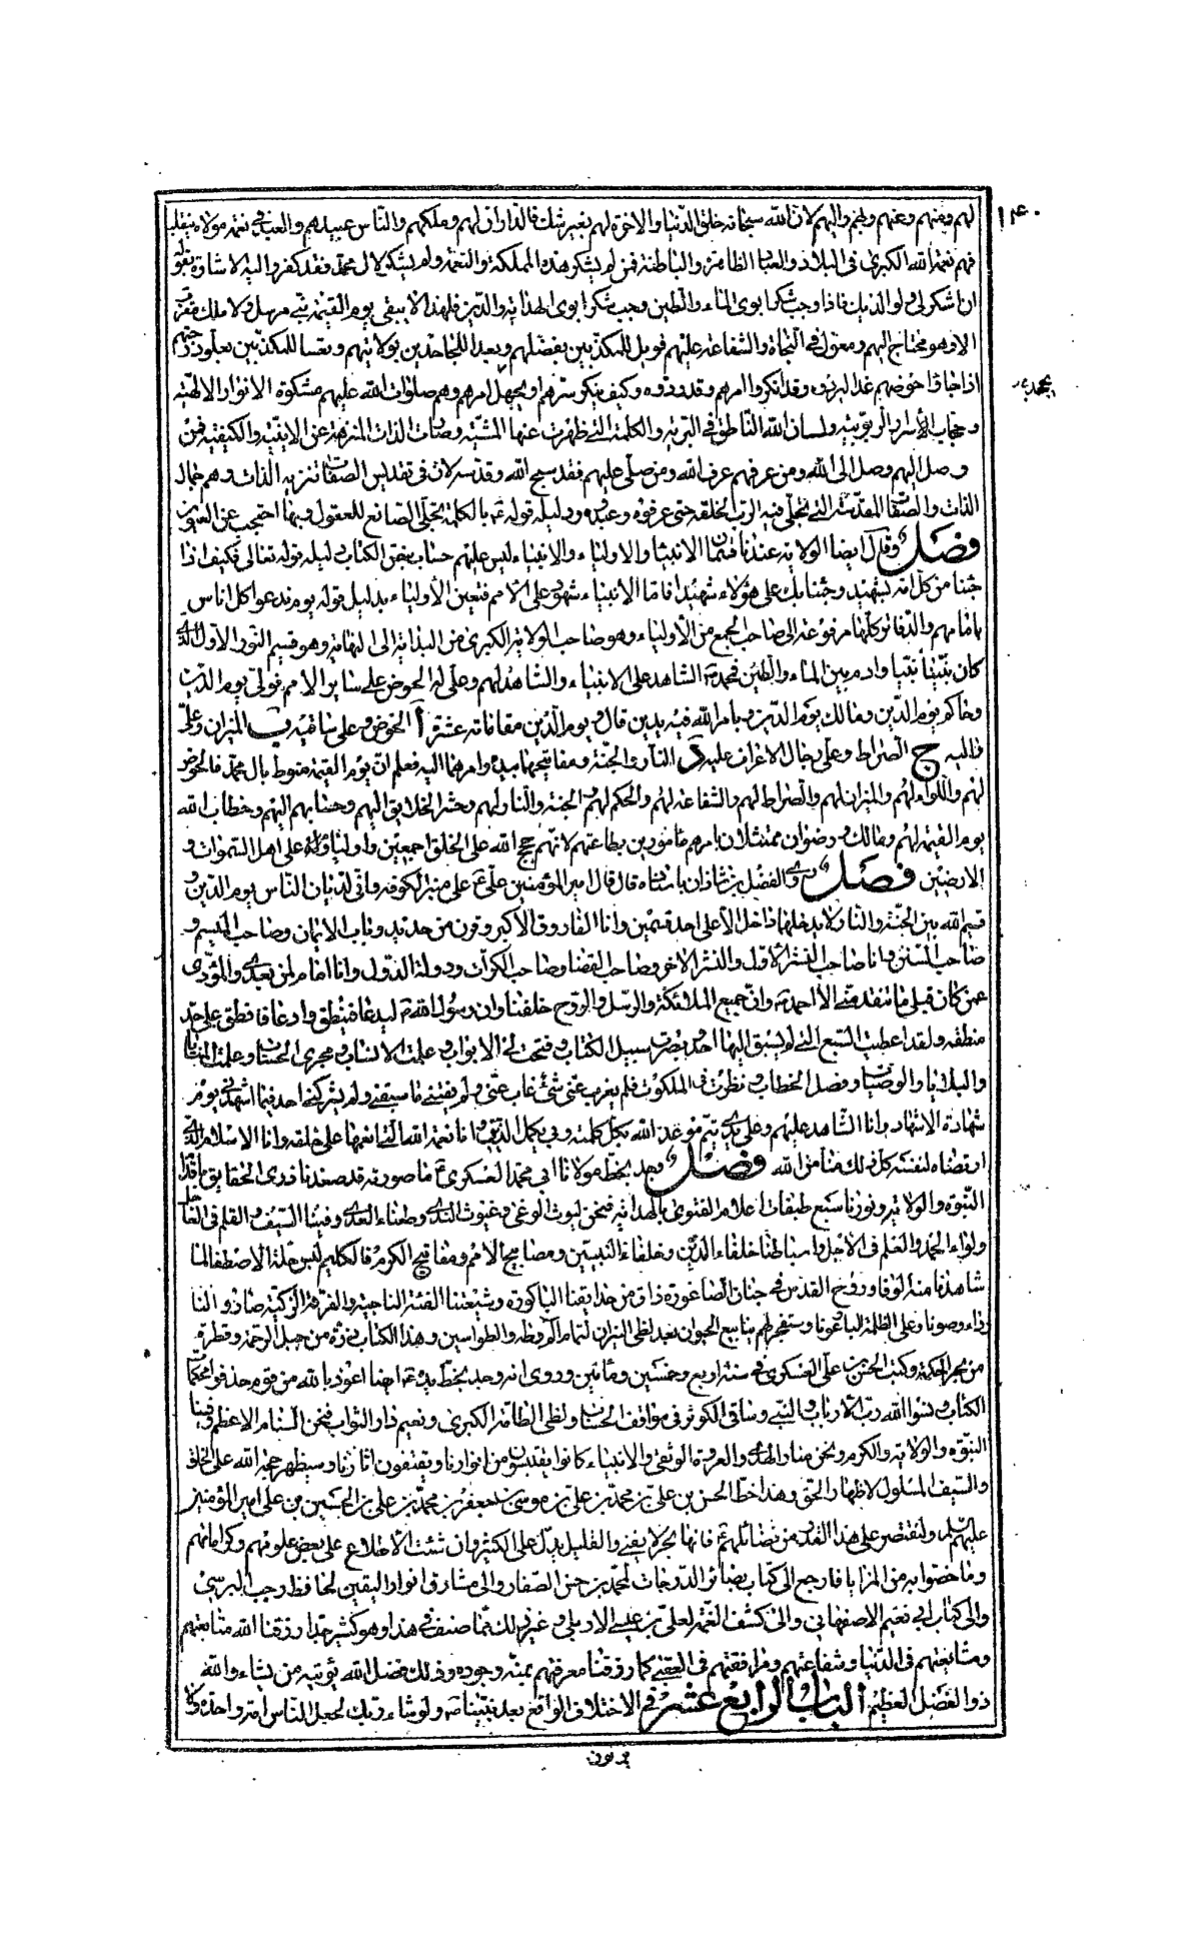 ١٤٠
لهم ومنهم وعنهم وبهم واليهم لان الله سبحانه خلق الدنيا والاخرة لهم بغير شك فالداران لهم وملكهم والناس عبيدهم والعبد في نعمة مولاه يتقلب
فهم نعمة الله الكبرى في البلاد والعباد الظاهرة والباطنة فمن لم يشكر هذه المملكة والنعمة ولم يشكر لال محمد فقد كفر واليه الاشارة بقوله
ان اشكر لي ولوالديك فاذا وجب شكر ابوى الماء والطين وجب شكر ابوى الهداية والدين فلهذا لا يبقى يوم القيمة نبي مرسل ولا ملك مقرب
الا وهو محتاج اليهم ومعول في النجاة والشفاعة عليهم فويل للمكذبين بفضلهم وبعدا للجاحدين بولايتهم وتعسا للمكذبين بعلو درجتهم
اذا جاؤا حوضهم غدا ليردوه وقد انكروا امرهم وقد ردوه وكيف ينكر سرهم او يجهل امرهم وهم صلوات الله عليهم مشكوة الانوار الالهية
وحجاب الأسرار الربوبية ولسان الله الناطق في البرية والكلمة التي ظهرت عنها المشية وصفات الذات المنزهة عن الاينية والكيفية فمن
وصل اليهم وصل الى الله ومن عرفهم عرف الله ومن صلى عليهم فقد سبح الله وقدسه لان في تقديس الصفات تنزيه الذات وهم جمال
الذات والصفات المقدسة التي تجلى فيه الرب لخلقه حتى عرفوه وعبدوه ودليله قوله ع بالكلمة تجلى الصانع للعقول وبها احتجب عن العيون
فصل وقال ايضا الولاية عندنا قسمان الانبياء والاولياء والانبياء ليس عليهم حساب بنص الكتاب دليله قوله تعالى فكيف اذا
جئنا من كل امة بشهيد وجئنا بك على هؤلاء شهيدا فاما الانبياء شهود على الامم فتعين الأولياء بدليل قوله يوم ندعوا كل اناس
بامامهم والدفاتر كلها مرفوعة الى صاحب الجمع من الأولياء وهو صاحب الولاية الكبرى من البداية الى النهاية وهو قسيم النور الاول الذي
كان نبينا نبيا وادم بين الماء والطين فمحمد ص الشاهد على الانبياء والشاهد لهم وعلى له الحوض على سائر الامم فولى يوم الدين
وحاكم يوم الدين ومالك يوم الدين وبامر الله فيه يدين قال ويوم الدين مقاماته عشرة أ الحوض وعلى ساقيه ب الميزان وعلى
واليه ج الصراط وعلى رجال الاعراف عليه د النار والجنة ومفاتيحها بيده وامرهما اليه فعلم ان يوم القيمة منوط بال محمد فالحوض
لهم واللواء لهم والميزان لهم والصراط لهم والشفاعة لهم والحكم لهم والجنة والنار لهم وحشر الخلايق اليهم وحسابهم اليهم وخطاب الله
يوم القيمة لهم ومالك ورضوان ممتثلان بامرهم مأمورين بطاعتهم لانهم حجج الله على الخلق اجمعين واولياؤه على اهل السموات و
الارضين فصل روى الفضل بن شاذان باسناده قال قال امير المؤمنين علي ع على منبر الكوفة واني لديان الناس يوم الدين و
قسيم الله بين الجنة والنار لا يدخلها داخل الا على احد قسمين وانا الفاروق الاكبر وقرن من حديد وباب الايمان وصاحب الميسم و
صاحب السنن وانا صاحب النشر الاول والنشر الاخر وصاحب القضا وصاحب الكرات ودولة الدول وانا امام لمن بعدي والمؤدى
عمن كان قبلي ما يتقدمني الا احمد ص وان جميع الملائكة والرسل والروح خلفنا وان رسول الله ص ليدعا فينطق وادعا فانطق على حد
منطقه ولقد اعطيت السبع التي لم يسبق اليها احد بصرت سبيل الكتاب وفتحت لى الابواب وعلمت الانساب ومجرى الحساب وعلمت المنايا
والبلايا والوصايا وفصل الخطاب ونظرت في الملكوت فلم يعزب عني شئ غاب عني ولم يفتني ما سبقني ولم يشركني احد فيما اشهدني يوم
شهادة الاشهاد وانا الشاهد عليهم وعلى يدي يتم موعد الله بكل كلمة وبي يكمل الدين وانا نعمة الله التي انعمها على خلقه وانا الاسلام الذي
ارتضاه لنفسه كل ذلك منا من الله فصل وجد بخط مولانا ابى محمد العسكرى ع ما صورته قد صعدنا ذرى الحقايق باقدام
النبوة والولاية ونورنا سبع طبقات اعلام الفتوى بالهداية فنحن ليوث الوغى وغيوث الندى وطعناء العدى وفينا السيف والقلم في العاجل
ولواء الحمد والعلم في الاجل واسباطنا خلفاء الدين وخلفاء النبيين ومصابيح الامم ومفاتيح الكرم فالكليم لبس حلة الاصطفا لما
شاهدنا منه الوفا وروح القدس في جنان الصاغورة ذاق من حدايقنا الباكورة وشيعتنا الفئة الناجية والفرقة الزكية صاروا لنا
رداء وصونا وعلى الظلمة البا وعونا وستفجر لهم ينابيع الحيوان بعد لظى النيران لتمام الم وطه والطواسين وهذا الكتاب ذرة من جبل الرحمة وقطرة
من بحر الحكمة وكتب الحسن بن علي العسكرى في سنة اربع وخمسين ومأتين وروى انه وجد بخط يده ع ايضا اعوذ بالله من قوم حذفوا محكمات
الكتاب ونسوا الله رب الارباب والنبي وساقي الكوثر في مواقف الحساب ولظى الطامة الكبرى ونعيم دار الثواب فنحن السنام الاعظم وفينا
النبوة والولاية والكرم ونحن منار الهدى والعروة الوثقى والانبياء كانوا يقتبسون من انوارنا ويقتفون اثارنا وسيظهر حجة الله على الخلق
والسيف المسلول لاظهار الحق وهذا خط الحسن بن علي بن محمد بن علي بن موسى بن جعفر بن محمد بن علي بن الحسين بن على امير المؤمنين
عليهم السلم ولنقتصر على هذا القدر من فضائلهم ع فانها بحر لا يفنى والقليل يدل على الكثير وان شئت الاطلاع على بعض علومهم وكراماتهم
وما خصوا به من المزايا فارجع الى كتاب بصائر الدرجات لمحمد بن حسن الصفار والى مشارق انوار اليقين لحافظ رجب البرسي
والى كتاب ابي نعيم الاصفهاني والى كشف الغمة لعلي بن عيسى الاربلي وغير ذلك مما صنف في هذا وهو كثير جدا رزقنا الله متابعتهم
ومشايعتهم في الدنيا وشفاعتهم ومرافقتهم في العقبى كما رزقنا معرفتهم بمنه وجوده وذلك فضل الله يؤتيه من يشاء والله
ذو الفضل العظيم الباب الرابع عشر في الاختلاف الواقع بعد نبينا ص ولو شاء ربك لجعل الناس امة واحدة ولا
يزالون